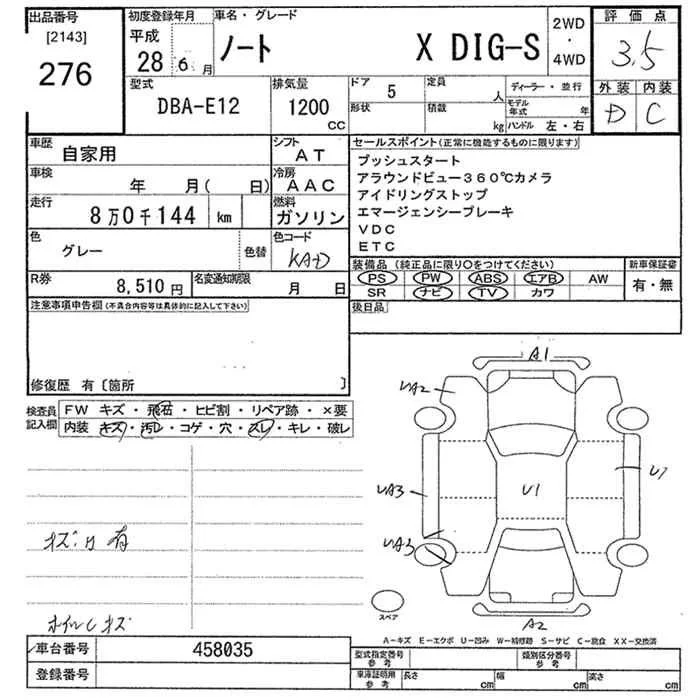 出品番号
[2143]
276
初度登録年月
平成
28 6 月
車名・グレード
ノート X DIG-S
2WD
・
4WD
評価点
3.5
外装 内装
D C
型式
DBA-E12
排気量
1200
CC
ドア 5
形状
定員 人
積載 kg
ディーラー・並行
モデル年式 年
ハンドル 左・右
車歴
自家用
シフト
AT
車検
年 月( 日)
冷房
AAC
走行
8万0千144 km
燃料
ガソリン
色
グレー
色替
色コード
KAD
R券
8,510 円
名変通知期限
月 日
セールスポイント(正常に機能するものに限ります)
プッシュスタート
アラウンドビュー360℃カメラ
アイドリングストップ
エマージェンシーブレーキ
VDC
ETC
装備品(純正品に限り○をつけてください)
PS PW ABS エアB AW
SR ナビ TV カワ
新車保証書
有・無
後日品
注意事項申告欄(不具合内容等は具体的に記入して下さい)
修復歴 有〔箇所 〕
検査員記入欄
FW キズ・飛石・ヒビ割・リペア跡・×要
内装 キズ・汚レ・コゲ・穴・スレ・キレ・破レ
キズ・凹有
ホイルキズ
A1
UA2
UA3
U1
U1
UA3
A2
スペア
A-キズ E-エクボ U-凹み W-補修跡 S-サビ C-腐食 XX-交換済
車台番号
458035
登録番号
型式指定番号
参考
類別区分番号
参考
車庫証明用
参考
長さ cm
幅 cm
高さ cm